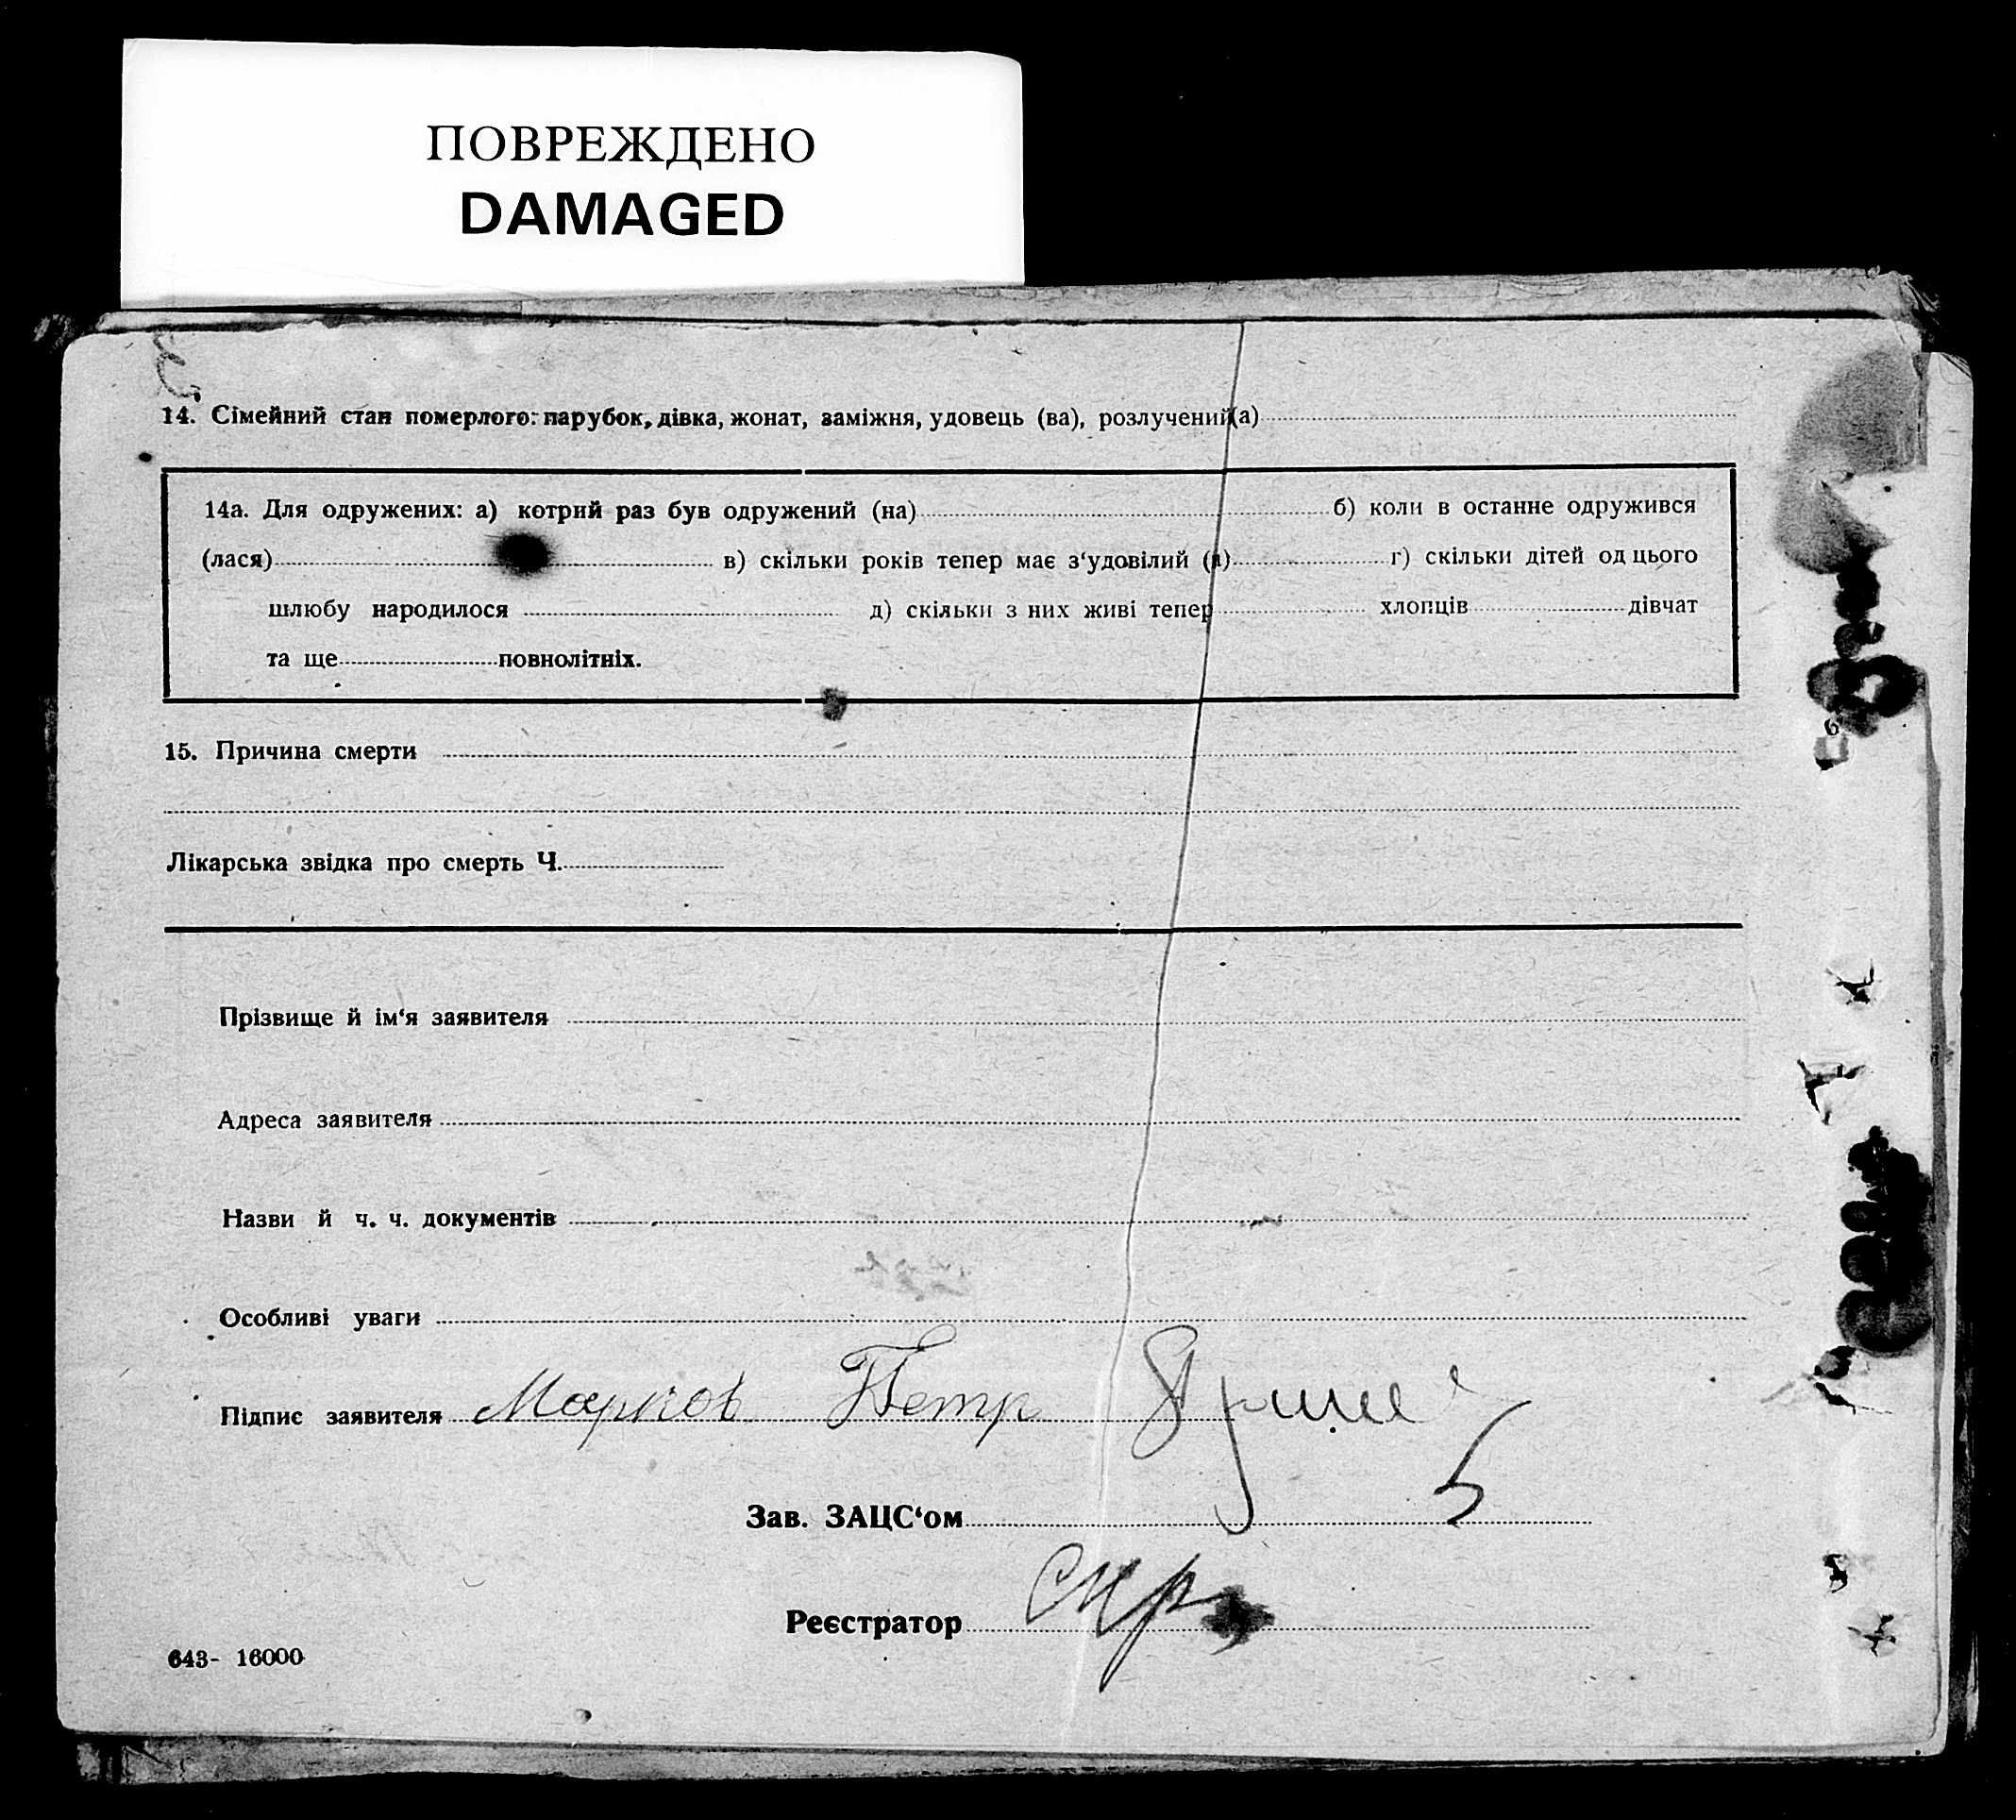 ПОВРЕЖДЕНО
DAMAGED
14. Сімейний стан померлого: парубок, дівка, жонат, заміжня, удовець (ва), розлучений(а)
14а. Для одружених: а) котрий раз був одружений (на) б) коли в останне одружився
(лася) в) скільки років тепер має з‘удовілий (а) г) скільки дітей од цього
шлюбу народилося д) скільки з них живі тепер хлопців дівчат
та ще повнолітніх.
15. Причина смерти
Лікарська звідка про смерть Ч.
Прізвище й ім‘я заявителя
Адреса заявителя
Назви й ч. ч. документів
Особливі уваги
Підпис заявителя Марков Петр
Зав. ЗАЦС‘ом
Реєстратор
643- 16000